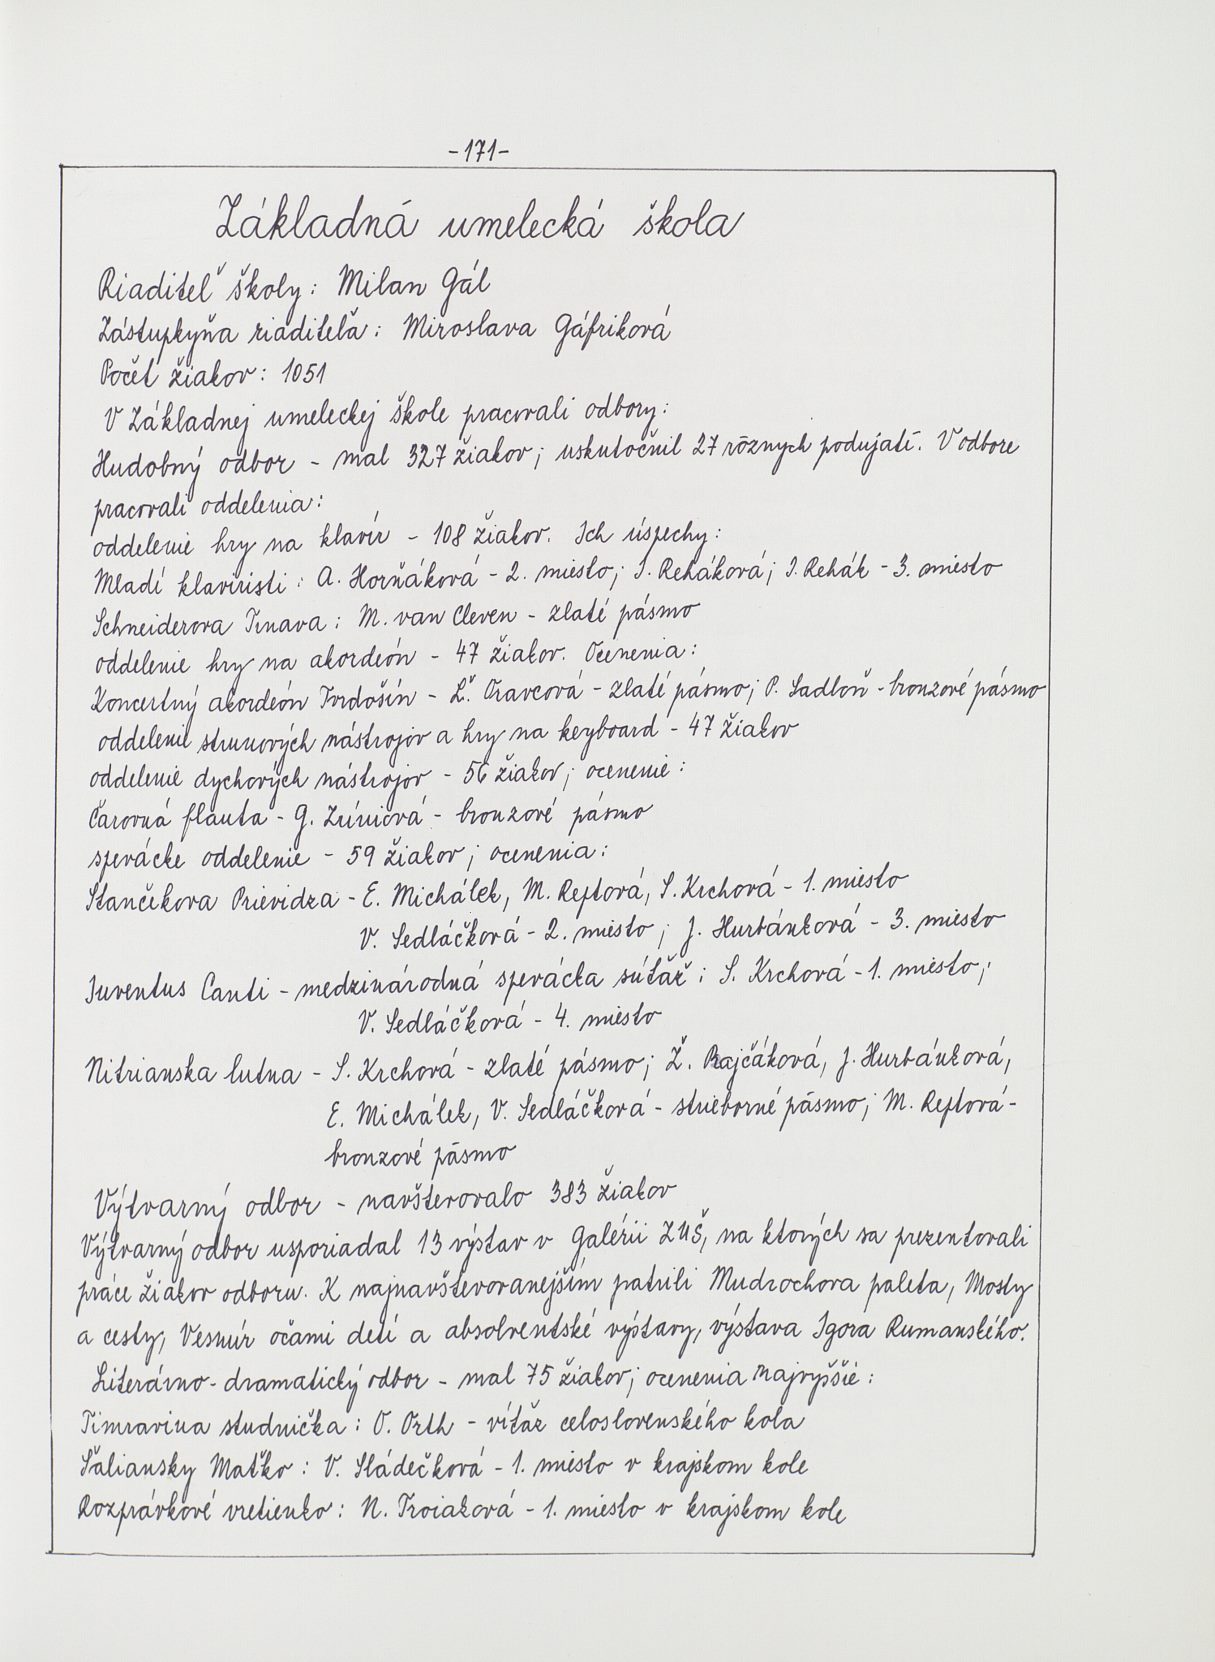 -171-
Základná umelecká škola
Riaditeľ školy: Milan Gál
Zástupkyňa riaditeľa: Miroslava Gáfriková
Počet žiakov: 1051
V Základnej umeleckej škole pracovali odbory:
Hudobný odbor - mal 327 žiakov; uskutočnil 27 rôznych podujatí. V odbore
pracovali oddelenia:
oddelenie hry na klavír - 108 žiakov. Ich úspechy:
Mladí klaviristi: A. Horňáková - 2. miesto; I. Reháková; I. Rehák - 3. miesto
Schneiderova Trnava: M. van Cleven - zlaté pásmo
oddelenie hry na akordeón - 47 žiakov. Ocenenia:
Koncertný akordeón Tvrdošín - Ľ. Oravcová - zlaté pásmo; P. Sadloň - bronzové pásmo
oddelenie strunových nástrojov a hry na keyboard - 47 žiakov
oddelenie dychových nástrojov - 56 žiakov; ocenenie:
Čarovná flauta - G. Zúniová - bronzové pásmo
spevácke oddelenie - 59 žiakov; ocenenia:
Stančekova Prievidza - E. Michálek, M. Reptová, S. Krchová - 1. miesto
V. Sedláčková - 2. miesto; J. Hurbánková - 3. miesto
Iuventus Canti - medzinárodná spevácka súťaž: S. Krchová - 1. miesto;
V. Sedláčková - 4. miesto
Nitrianska lutna - S. Krchová - zlaté pásmo; Ž. Rajčáková, J. Hurbánková,
E. Michálek, V. Sedláčková - strieborné pásmo; M. Reptová -
bronzové pásmo
Výtvarný odbor - navštevovalo 383 žiakov
Výtvarný odbor usporiadal 13 výstav v Galérii ZUŠ, na ktorých sa prezentovali
práce žiakov odboru. K najnavštevovanejším patrili Mudrochova paleta, Mosty
a cesty, Vesmír očami detí a absolventské výstavy, výstava Igora Rumanského.
Literárno-dramatický odbor - mal 75 žiakov; ocenenia najvyššie:
Timravina studnička: O. Orth - víťaz celoslovenského kola
Šaliansky Maťko: V. Sládečková - 1. miesto v krajskom kole
Rozprávkové vretienko: N. Troiaková - 1. miesto v krajskom kole